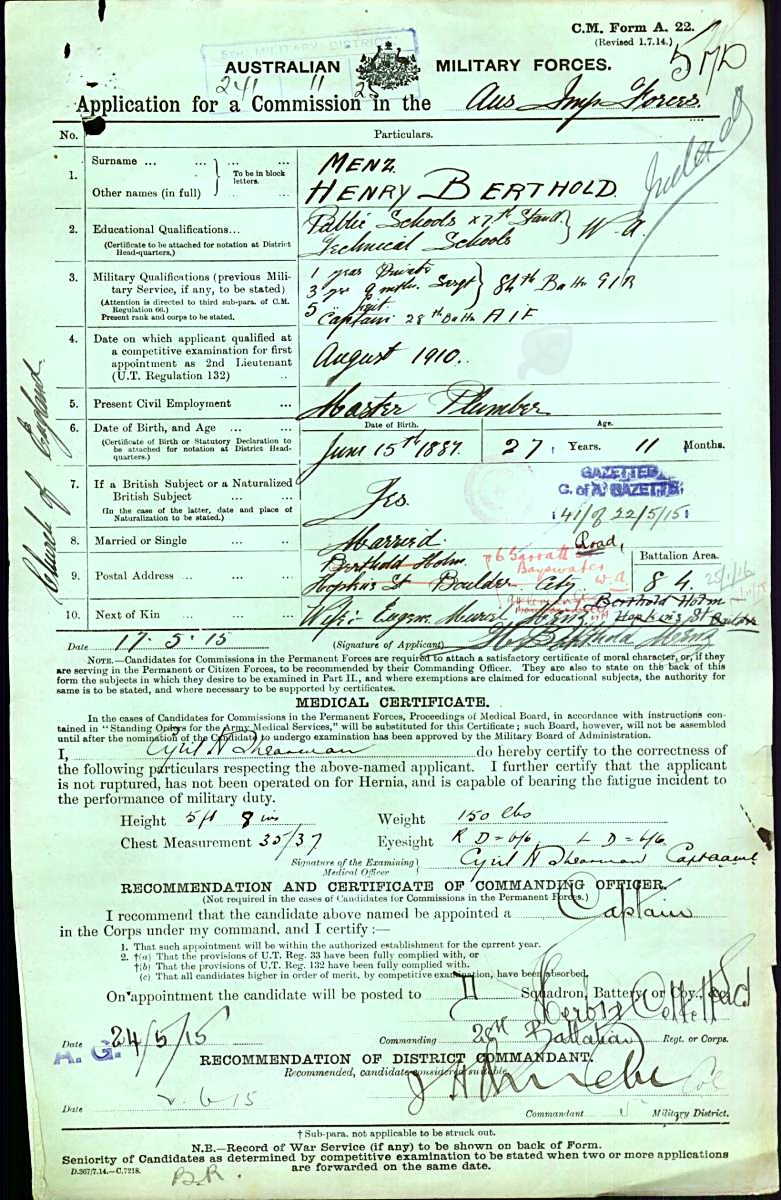 C.M. Form A. 22.
(Revised 1.7.14.)
5TH MILITARY DISTRICT
AUSTRALIAN MILITARY FORCES.
Application for a Commission in the Aus Imp Forces.
No. Particulars.
1. Surname ... ... ... ...
Other names (in full) ...
To be in block letters.
MENZ
HENRY BERTHOLD
2. Educational Qualifications...
(Certificate to be attached for notation at District Head-quarters.)
Public Schools x 7th Stand.
Technical Schools
W.A.
3. Military Qualifications (previous Military Service, if any, to be stated)
(Attention is directed to third sub-para. of C.M. Regulation 66.)
Present rank and corps to be stated.
1 year Private
3 yrs 9 mths. Sergt
5 "
84th Batn GIR
Captain 28th Batn AIF
4. Date on which applicant qualified at a competitive examination for first appointment as 2nd Lieutenant (U.T. Regulation 132) ..
August 1910.
5. Present Civil Employment ...
Master Plumber
6. Date of Birth, and Age ... ...
(Certificate of Birth or Statutory Declaration to be attached for notation at District Head-quarters.)
Date of Birth.
June 15th 1887.
Age.
27 Years. 11 Months.
7. If a British Subject or a Naturalized British Subject ... ...
(In the case of the latter, date and place of Naturalization to be stated.)
Yes.
GAZETTED
C. of A. GAZETTE
41 of 22/5/15
8. Married or Single ... ..
Married.
9. Postal Address ... ... ...
Berthold Holm
Hopkins St Boulder City
76 Garratt Road,
Bayswater
W.A.
Battalion Area
84.
25/1/16
10. Next of Kin ... ... ...
Wife: Eugene Muriel Menz Berthold Holm
Hopkins St Boulder
Church of England
Date 17.5.15 (Signature of Applicant) H Berthold Menz
NOTE.—Candidates for Commissions in the Permanent Forces are required to attach a satisfactory certificate of moral character, or, if they
are serving in the Permanent or Citizen Forces, to be recommended by their Commanding Officer. They are also to state on the back of this
form the subjects in which they desire to be examined in Part II., and where exemptions are claimed for educational subjects, the authority for
same is to be stated, and where necessary to be supported by certificates.
MEDICAL CERTIFICATE.
In the cases of Candidates for Commissions in the Permanent Forces, Proceedings of Medical Board, in accordance with instructions con-
tained in "Standing Orders for the Army Medical Services," will be substituted for this Certificate; such Board, however, will not be assembled
until after the nomination of the Candidate to undergo examination has been approved by the Military Board of Administration.
I, Cyril N Shearman do hereby certify to the correctness of
the following particulars respecting the above-named applicant. I further certify that the applicant
is not ruptured, has not been operated on for Hernia, and is capable of bearing the fatigue incident to
the performance of military duty.
Height 5 ft 8 ins Weight 150 lbs
Chest Measurement 35/37 Eyesight R D = 6/6 L D = 6/6
Signature of the Examining Medical Officer Cyril N Shearman Captaamc
RECOMMENDATION AND CERTIFICATE OF COMMANDING OFFICER.
(Not required in the cases of Candidates for Commissions in the Permanent Forces.)
I recommend that the candidate above named be appointed a Captain
in the Corps under my command, and I certify :—
1. That such appointment will be within the authorized establishment for the current year.
2. †(a) That the provisions of U.T. Reg. 33 have been fully complied with, or
†(b) That the provisions of U.T. Reg. 132 have been fully complied with.
(c) That all candidates higher in order of merit, by competitive examination, have been absorbed.
On appointment the candidate will be posted to D Squadron, Battery, or Coy.,
Date 24/5/15 Commanding 28th Battalion Regt. or Corps.
A. G.
RECOMMENDATION OF DISTRICT COMMANDANT.
Recommended, candidate considered suitable.
Col
Date 2.6.15 Commandant Military District.
† Sub-para. not applicable to be struck out.
N.B.—Record of War Service (if any) to be shown on back of Form.
Seniority of Candidates as determined by competitive examination to be stated when two or more applications
are forwarded on the same date.
D.367/7.14.—C.7218.
B.R.